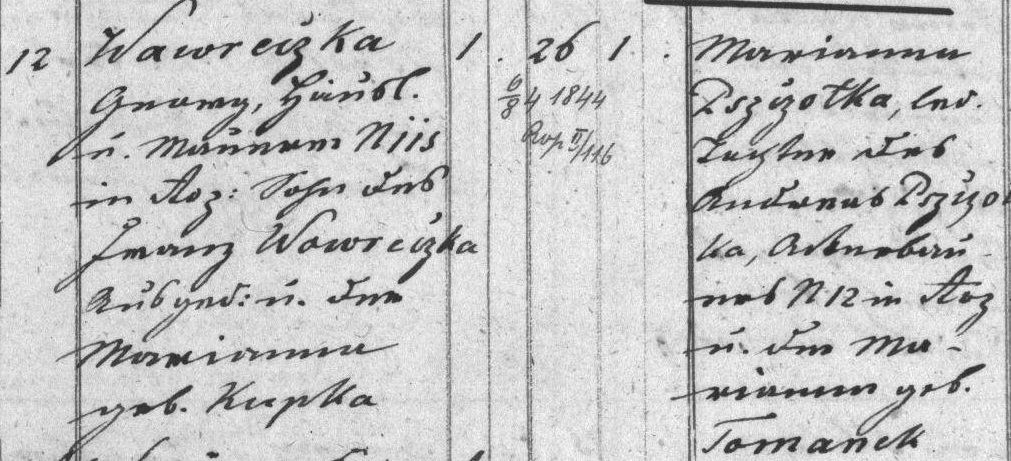 12 Wawreczka
Georg, Häusl.
u. Maurer N 115
in Roz: Sohn des
Franz Wawreczka
Ausged: u. der
Marianna
geb. Kupka
1. 26 1.
6/8 4 1844
Rop II/116
Marianna
Pszczolka, led.
Tochter des
Andreas Pszczol
ka, Ackerbau-
ers N 12 in Roz
u. der Ma-
rianna geb.
Tomanek